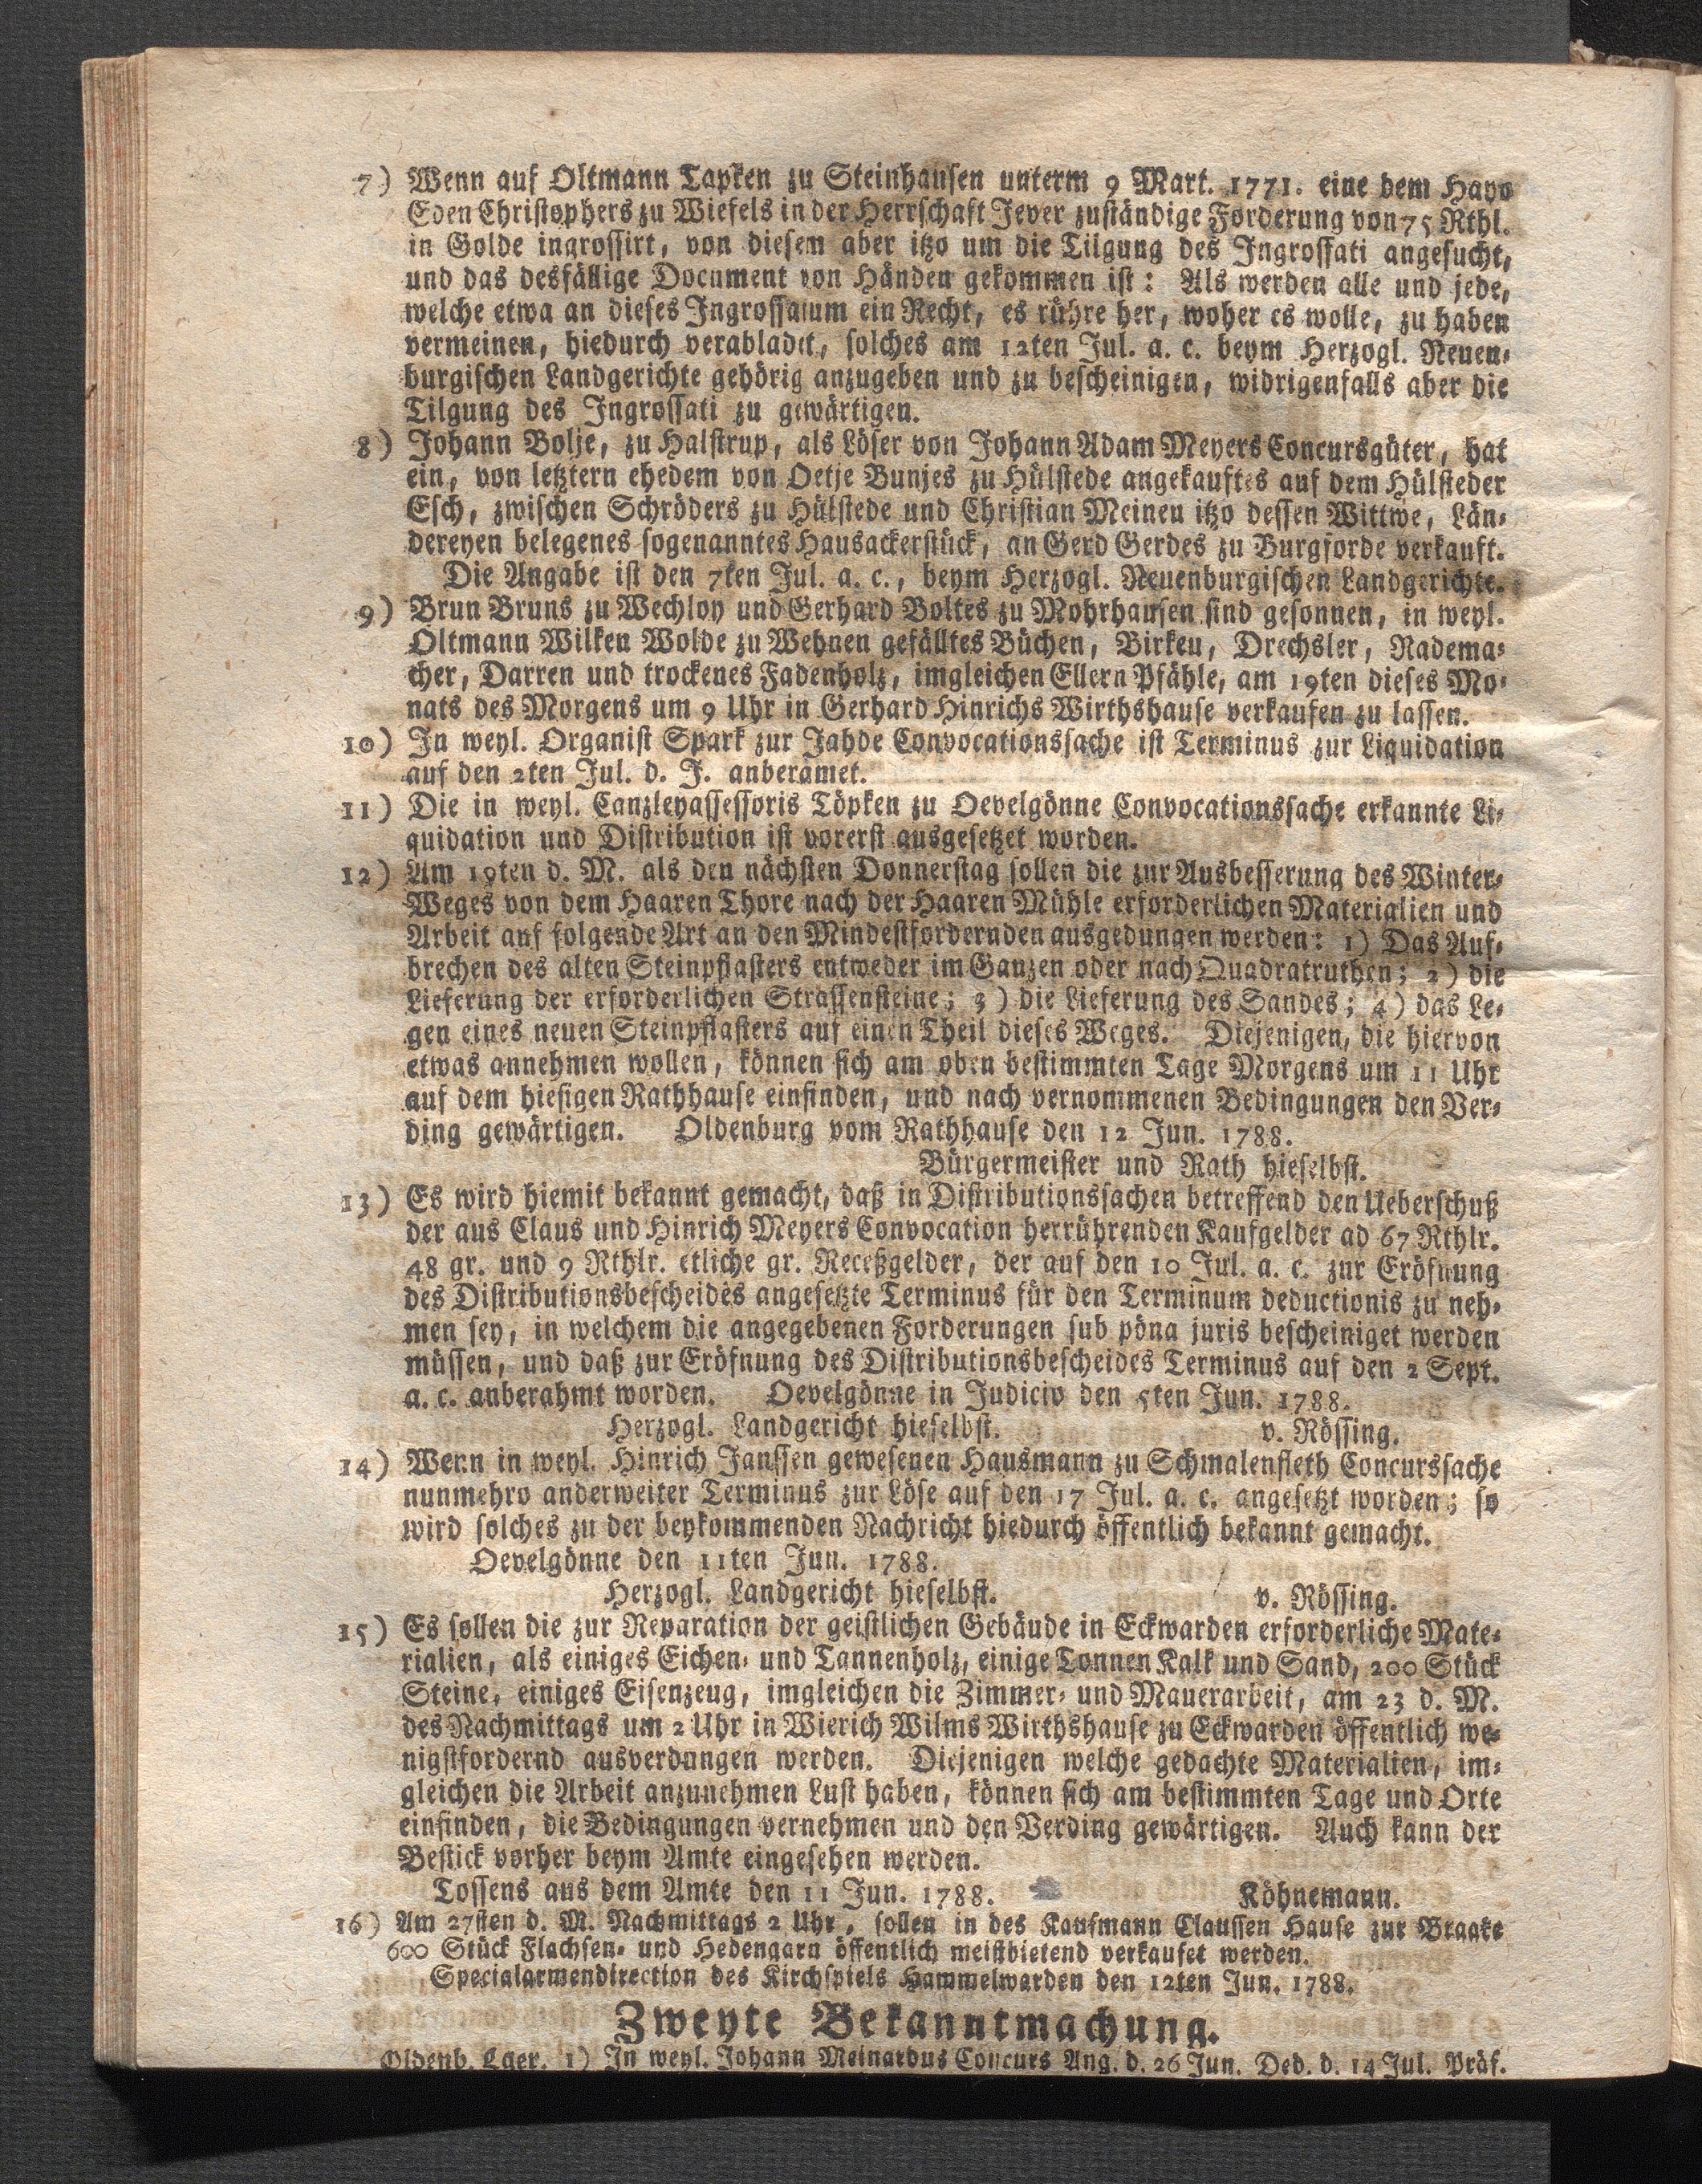 7) Wenn auf Oltmann Tapken zu Steinhausen unterm 9 Mart. 1771. eine dem Hayo
Eden Christophers zu Wiefels in der Herrschaft Jever zuständige Forderung von 75 Rthl.
in Golde ingrossirt, von diesem aber itzo um die Tilgung des Ingrossati angesucht,
und das desfällige Document von Händen gekommen ist: Als werden alle und jede,
welche etwa an dieses Ingrossatum ein Recht, es rühre her, woher es wolle, zu haben
vermeinen, hiedurch verabladet, solches am 12ten Jul. a. c. beym Herzogl. Neuen-
burgischen Landgerichte gehörig anzugeben und zu bescheinigen, widrigenfalls aber die
Tilgung des Ingrossati zu gewärtigen.
8) Johann Bolje, zu Halstrup, als Löser von Johann Adam Meyers Concursgüter, hat
ein, von letztern ehedem von Oetje Bunjes zu Hülstede angekauftes auf dem Hülsteder
Esch, zwischen Schröders zu Hülstede und Christian Meinen itzo dessen Wittwe, Län-
dereyen belegenes sogenanntes Hausackerstück, an Gerd Gerdes zu Burgforde verkauft.
Die Angabe ist den 7ten Jul. a. c., beym Herzogl. Neuenburgischen Landgerichte.
9) Brun Bruns zu Wechloy und Gerhard Boltes zu Mohrhausen sind gesonnen, in weyl.
Oltmann Wilken Wolde zu Wehnen gefälltes Büchen, Birken, Drechsler, Radema-
cher, Darren und trockenes Fadenholz, imgleichen Ellern Pfähle, am 19ten dieses Mo-
nats des Morgens um 9 Uhr in Gerhard Hinrichs Wirthshause verkaufen zu lassen.
10) In weyl. Organist Spark zur Jahde Convocationssache ist Terminus zur Liquidation
auf den 2ten Jul. d. J. anberamet.
11) Die in weyl. Canzleyassessoris Töpken zu Oevelgönne Convocationssache erkannte Li-
quidation und Distribution ist vorerst ausgesetzet worden.
12) Am 19ten d. M. als den nächsten Donnerstag sollen die zur Ausbesserung des Winter-
Weges von dem Haaren Thore nach der Haaren Mühle erforderlichen Materialien und
Arbeit auf folgende Art an den Mindestfordernden ausgedungen werden: 1) Das Auf-
brechen des alten Steinpflasters entweder im Ganzen oder nach Quadratruthen; 2) die
Lieferung der erforderlichen Strassensteine; 3) die Lieferung des Sandes; 4) das Le-
gen eines neuen Steinpflasters auf einen Theil dieses Weges. Diejenigen, die hiervon
etwas annehmen wollen, können sich am oben bestimmten Tage Morgens um 11 Uhr
auf dem hiesigen Rathhause einfinden, und nach vernommenen Bedingungen den Ver-
ding gewärtigen. Oldenburg vom Rathhause den 12 Jun. 1788.
Bürgermeister und Rath hieselbst.
13) Es wird hiemit bekannt gemacht, daß in Distributionssachen betreffend den Ueberschuß
der aus Claus und Hinrich Meyers Convocation herrührenden Kaufgelder ad 67 Rthlr.
48 gr. und 9 Rthlr. etliche gr. Receßgelder, der auf den 10 Jul. a. c. zur Eröfnung
des Distributionsbescheides angesetzte Terminus für den Terminum deductionis zu neh-
men sey, in welchem die angegebenen Forderungen sub pöna juris bescheiniget werden
müssen, und daß zur Eröfnung des Distributionsbescheides Terminus auf den 2 Sept.
a. c. anberahmt worden. Oevelgönne in Judicio den 5ten Jun. 1788.
Herzogl. Landgericht hieselbst. v. Rössing.
14) Wenn in weyl. Hinrich Janssen gewesenen Hausmann zu Schmalenfleth Concurssache
nunmehro anderweiter Terminus zur Löse auf den 17 Jul. a. c. angesetzt worden; so
wird solches zu der beykommenden Nachricht hiedurch öffentlich bekannt gemacht.
Oevelgönne den 11ten Jun. 1788.
Herzogl. Landgericht hieselbst. v. Rössing.
15) Es sollen die zur Reparation der geistlichen Gebäude in Eckwarden erforderliche Mate-
rialien, als einiges Eichen- und Tannenholz, einige Tonnen Kalk und Sand, 200 Stück
Steine, einiges Eisenzeug, imgleichen die Zimmer- und Mauerarbeit, am 23 d. M.
des Nachmittags um 2 Uhr in Wierich Wilms Wirthshause zu Eckwarden öffentlich we-
nigstfordernd ausverdungen werden. Diejenigen welche gedachte Materialien, im-
gleichen die Arbeit anzunehmen Lust haben, können sich am bestimmten Tage und Orte
einfinden, die Bedingungen vernehmen und den Verding gewärtigen. Auch kann der
Bestick vorher beym Amte eingesehen werden.
Tossens aus dem Amte den 11 Jun. 1788. Köhnemann.
16) Am 27sten d. M. Nachmittags 2 Uhr, sollen in des Kaufmann Claussen Hause zur Braake
600 Stück Flachsen- und Hedengarn öffentlich meistbietend verkaufet werden.
Specialarmendirection des Kirchspiels Hammelwarden den 12ten Jun. 1788.
Zweyte Bekanntmachung.
Oldenb. Lger. 1) In weyl. Johann Meinardus Concurs Ang. d. 26 Jun. Ded. d. 14 Jul. Präf.